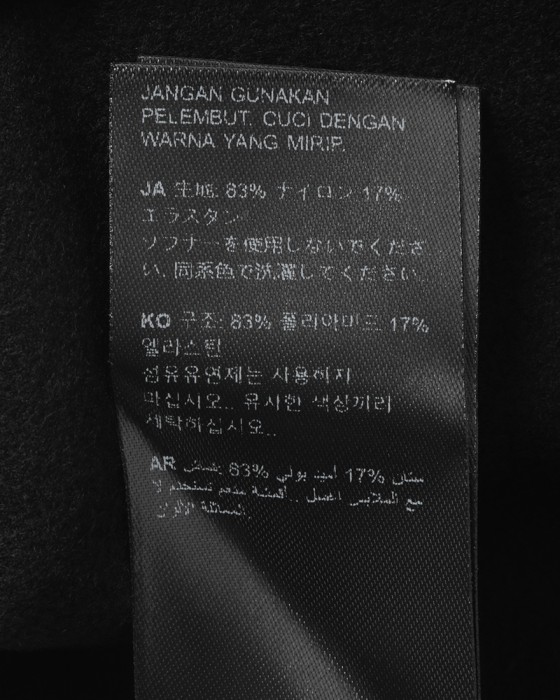 JANGAN GUNAKAN
PELEMBUT. CUCI DENGAN
WARNA YANG MIRIP.
JA 生地: 83% ナイロン 17%
エラスタン
ソフナーを使用しないでくださ
い. 同系色で洗濯してください.
KO 구조: 83% 폴리아미드 17%
엘라스틴
섬유유연제는 사용하지
마십시오.. 유사한 색상끼리
세탁하십시오..
AR 83% أميد بولي 17%
مع الملابس اغسل .. أقمشة منعم تستخدم لا
الألوان.